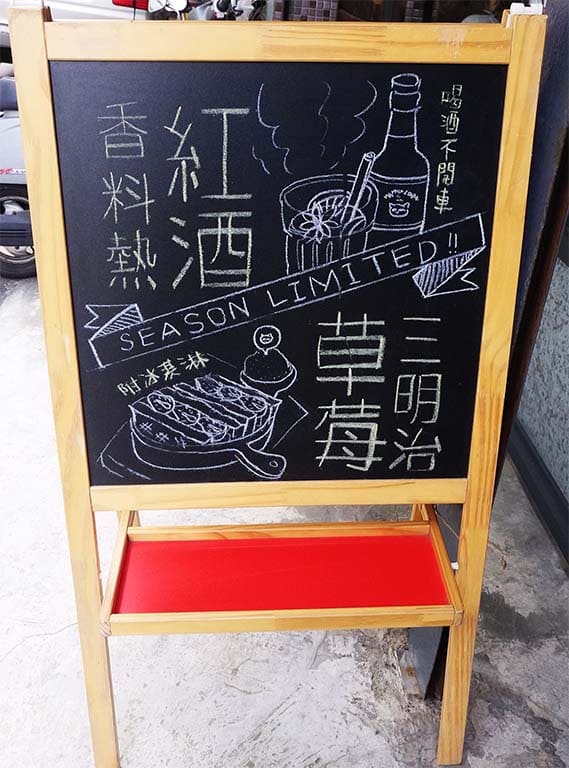 香料熱
紅酒
喝酒不開車
SEASON LIMITED!!
附冰淇淋
草莓
三明治